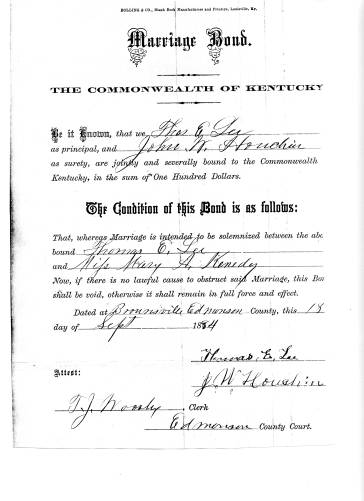 BOLLING & CO., Blank Book Manufacturers and Printers, Louisville, Ky.
Marriage Bond.
THE COMMONWEALTH OF KENTUCKY
Be it Known, that we, Thos E. Lee
as principal, and John W. Houchin
as surety, are jointly and severally bound to the Commonwealth
Kentucky, in the sum of One Hundred Dollars.
The Condition of this Bond is as follows:
That, whereas Marriage is intended to be solemnized between the abo
bound Thomas E. Lee
and Miss Mary A. Kenedy
Now, if there is no lawful cause to obstruct said Marriage, this Bon
shall be void, otherwise it shall remain in full force and effect.
Dated at Brownsville Edmonson County, this 18
day of Sept 1884
Thomas E. Lee
Attest:
J W Houchin
T. J. Clerk
Edmonson County Court.